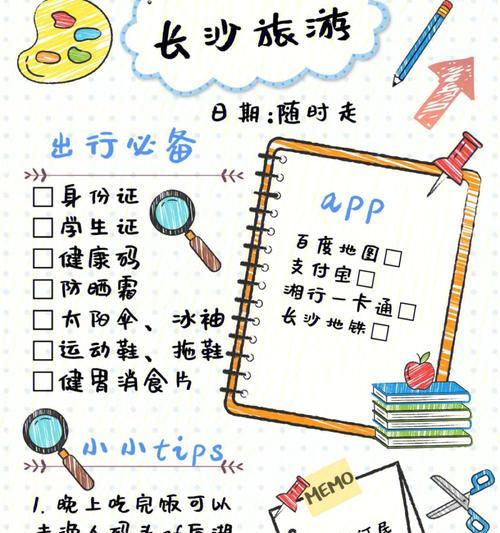 长沙旅游
日期:随时走
出行必备
身份证
学生证
健康码
防晒霜
太阳伞、冰袖
运动鞋、拖鞋
健胃消食片
app
百度地图
支付宝
湘行一卡通
长沙地铁
小小tips
1. 晚上吃完饭可以
MEMO